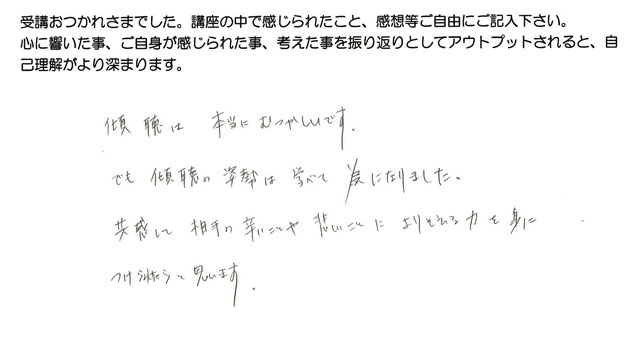 受講おつかれさまでした。講座の中で感じられたこと、感想等ご自由にご記入下さい。
心に響いた事、ご自身が感じられた事、考えた事を振り返りとしてアウトプットされると、自
己理解がより深まります。
傾聴は 本当にむつかしいです。
でも 傾聴の 姿勢は 学べて 気になりました。
共感して 相手の 辛いことや 悲しいことに よりそえる力を 身に
つけられたらと思います。